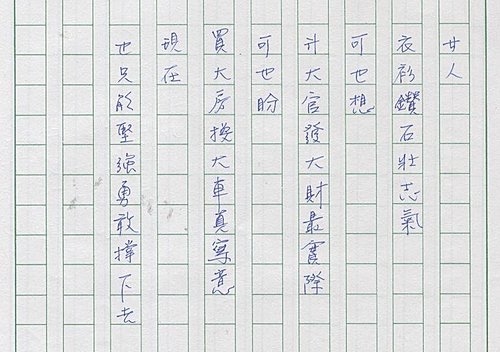 女人
衣衫鑽石壯志氣
可也想
升大官發大財最實際
可也盼
買大房換大車真寫意
現在
也只能堅強勇敢撐下去